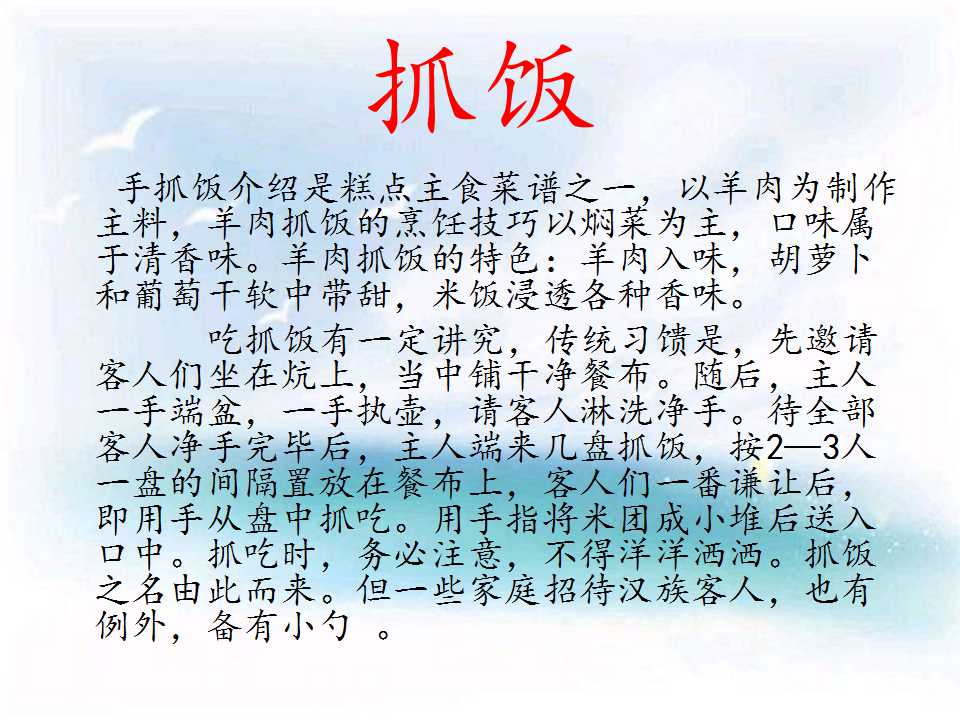 抓饭
手抓饭介绍是糕点主食菜谱之一，以羊肉为制作
主料，羊肉抓饭的烹饪技巧以焖菜为主，口味属
于清香味。羊肉抓饭的特色：羊肉入味，胡萝卜
和葡萄干软中带甜，米饭浸透各种香味。
吃抓饭有一定讲究，传统习馈是，先邀请
客人们坐在炕上，当中铺干净餐布。随后，主人
一手端盆，一手执壶，请客人淋洗净手。待全部
客人净手完毕后，主人端来几盘抓饭，按2—3人
一盘的间隔置放在餐布上，客人们一番谦让后，
即用手从盘中抓吃。用手指将米团成小堆后送入
口中。抓吃时，务必注意，不得洋洋洒洒。抓饭
之名由此而来。但一些家庭招待汉族客人，也有
例外，备有小勺 。